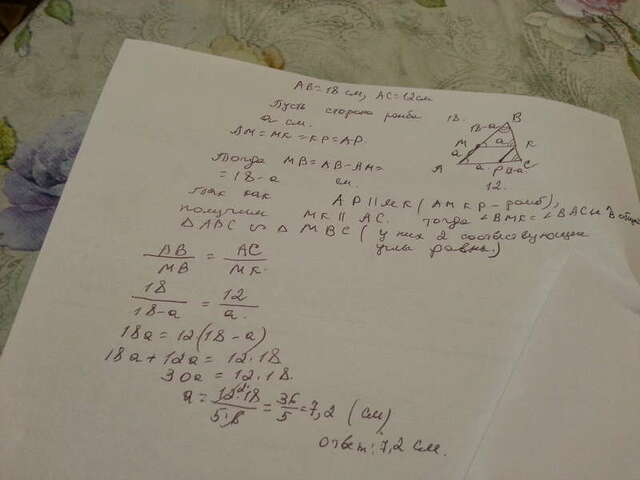 AB=18 см, AC=12 см
Пусть сторона ромба
a см.
AM=MK=KP=AP.
18.
B
18-a
M
a
K
a
A
a
P
12-a
C
12.
Тогда MB=AB-AM=
=18-a см.
Так как AP||MK (AMKP-ромб),
получим MK||AC. тогда ∠BMK=∠BAC и ∠B общ
△ABC ∽ △MBC ( у них 2 соответствующих
угла равны.)
AB/MB = AC/MK.
18/18-a = 12/a.
18a=12(18-a)
18a+12a=12·18
30a=12·18.
a=12·18/5·6=36/5=7,2 (см)
Ответ: 7,2 см.